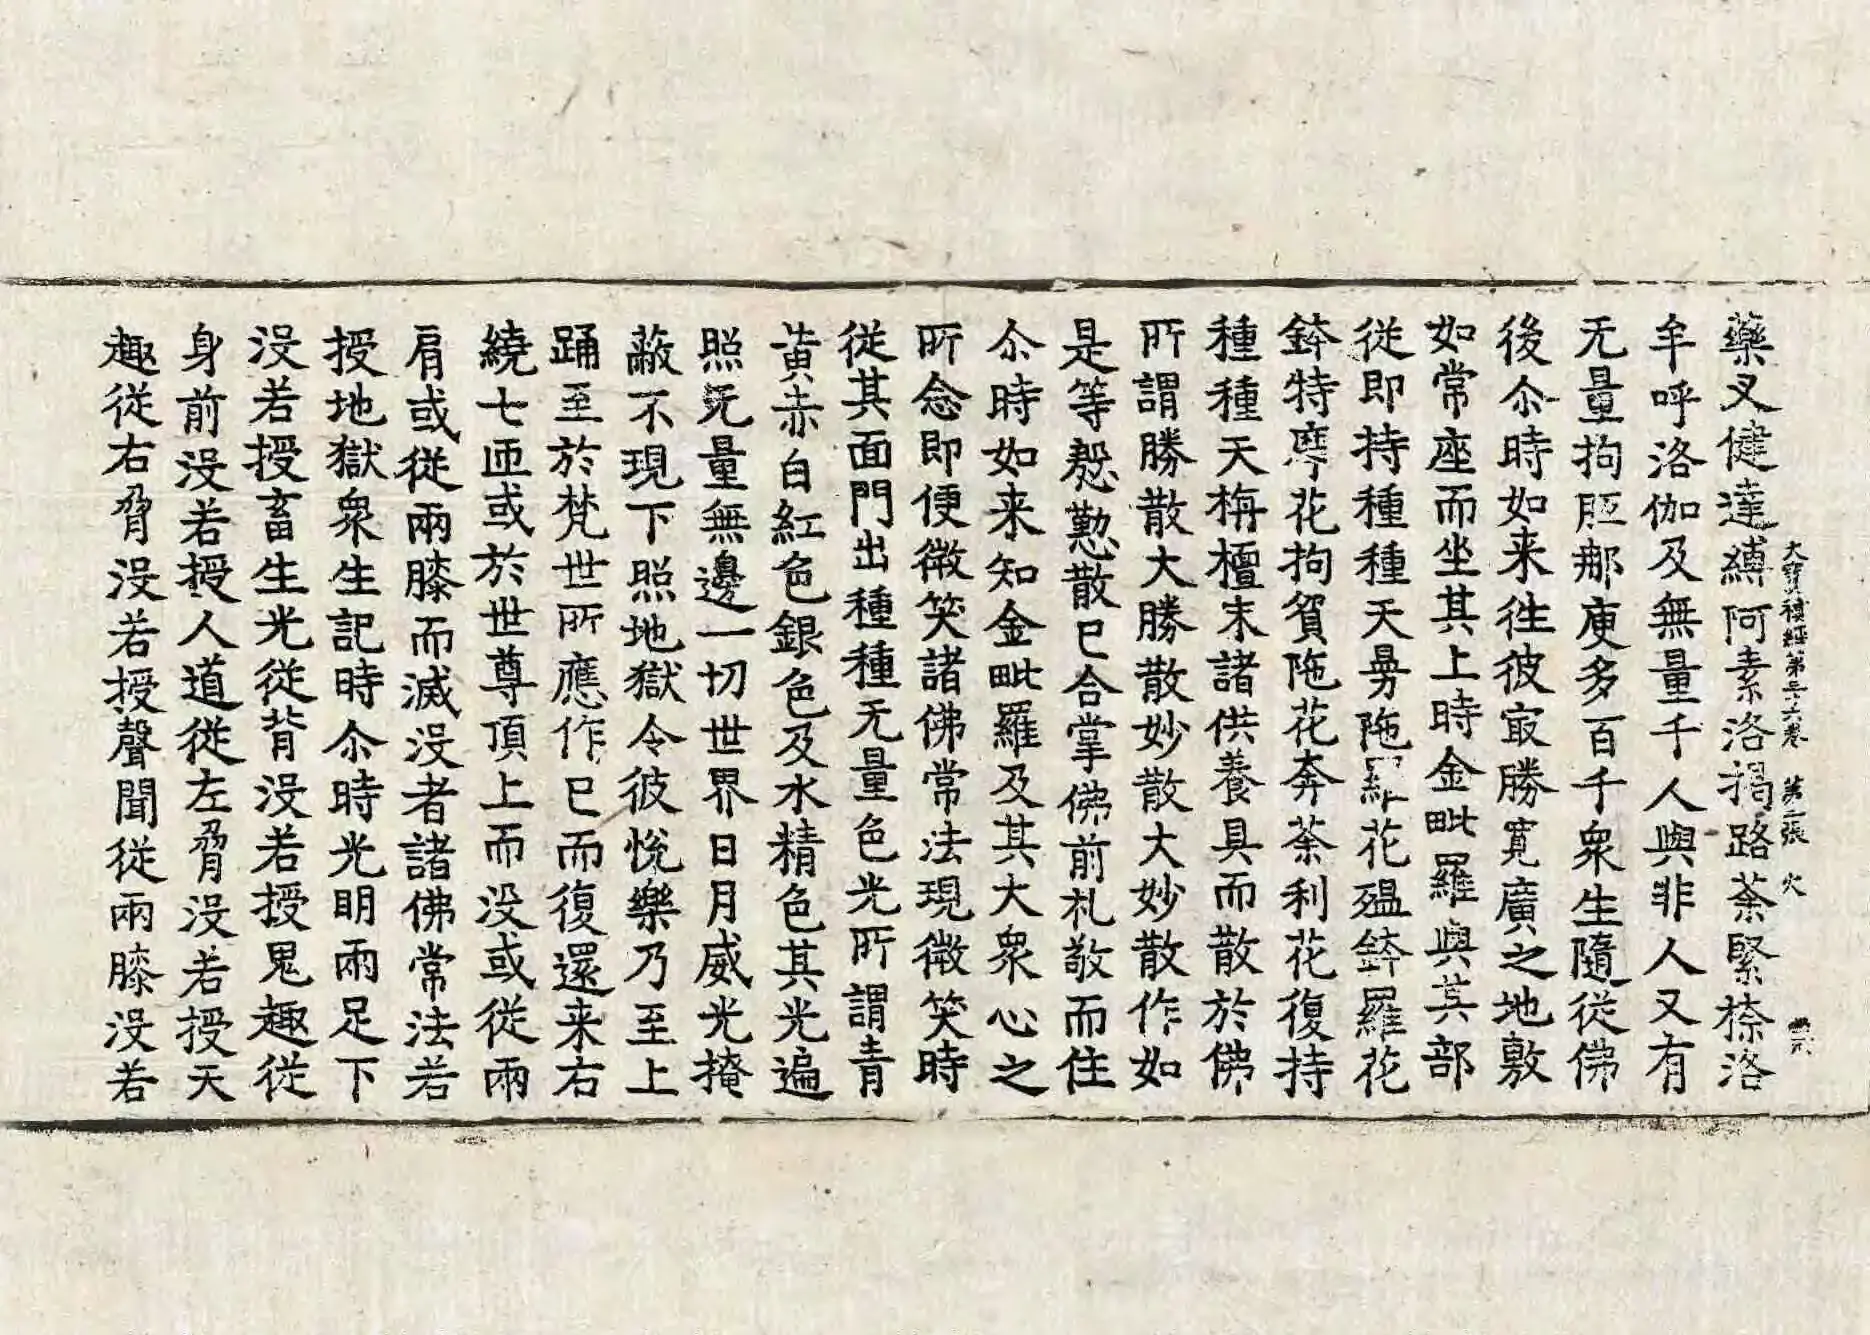 大寶積經第三十六卷 第二張 火
藥叉健達縛阿素洛揭路荼緊捺洛
牟呼洛伽及無量千人與非人又有
无量拘胝那庾多百千衆生隨從佛
後尒時如来往彼㝡勝寛廣之地敷
如常座而坐其上時金毗羅與其部
從即持種種天曼陁羅花殟鉢羅花
鉢特摩花拘貿陁花奔荼利花復持
種種天栴檀末諸供養具而散於佛
所謂勝散大勝散妙散大妙散作如
是等慇懃散已合掌佛前札敬而住
尒時如来知金毗羅及其大衆心之
所念即便微笑諸佛常法現微笑時
從其面門出種種无量色光所謂青
黄赤白紅色銀色及水精色其光遍
照无量無邊一切世界日月威光掩
蔽不現下照地獄令彼悅樂乃至上
踊至於梵世所應作已而復還来右
繞七匝或於世尊頂上而没或從兩
肩或從兩膝而滅没者諸佛常法若
授地獄衆生記時尒時光明兩足下
没若授畜生光從背没若授鬼趣從
身前没若授人道從左脅没若授天
趣從右脅没若授聲聞從兩膝没若